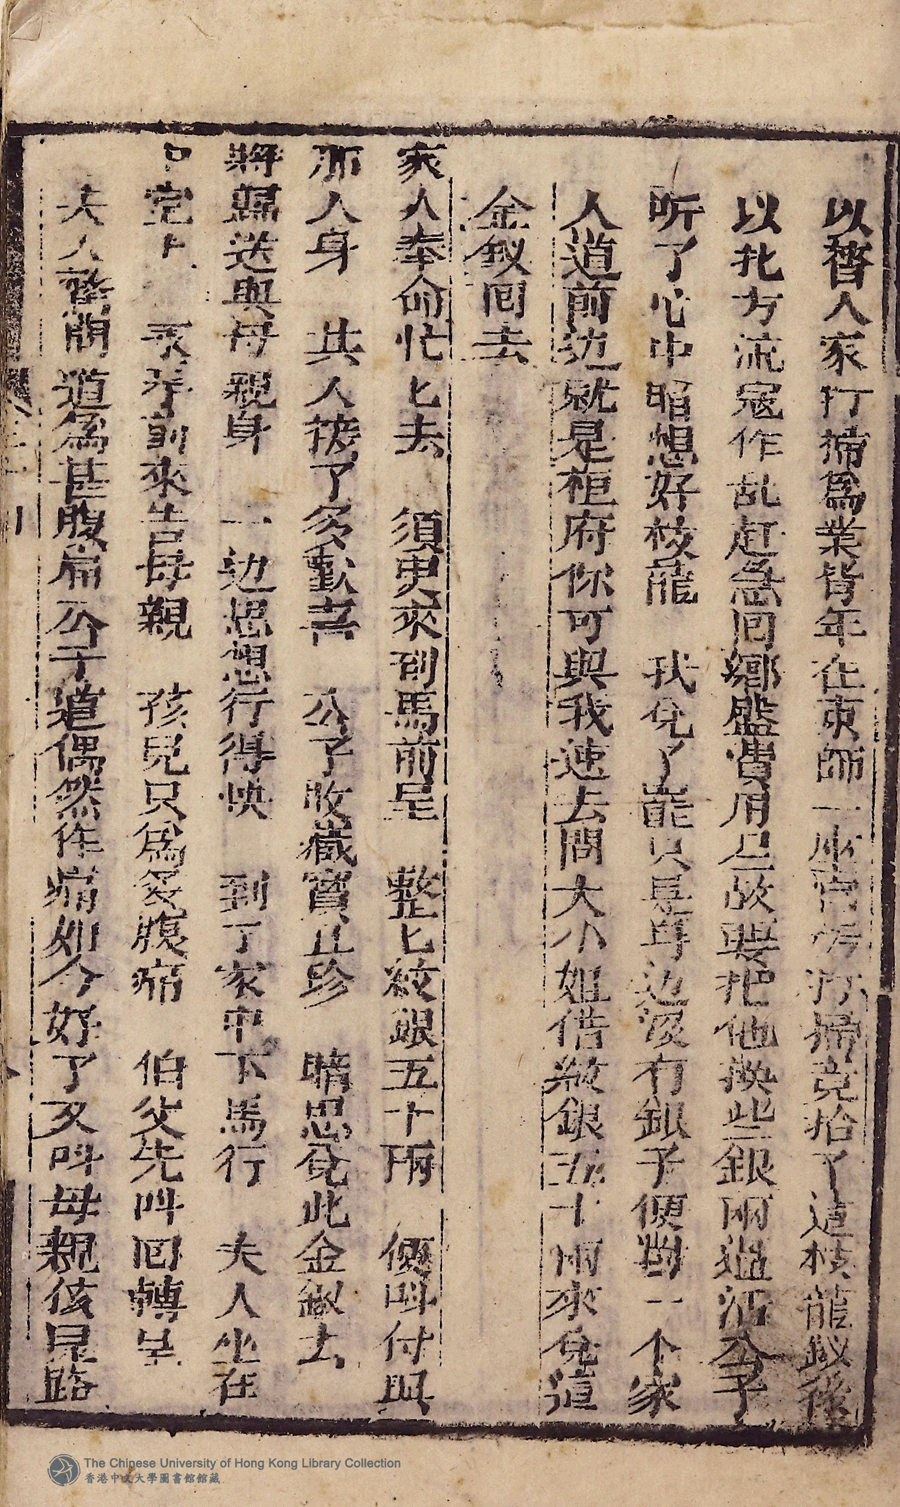 以替人家打掃爲業昔年在京師一座宮㑹打掃竟拾了這枝龍釵後
以北方流寇作乱赶急回鄉盤費用尽故要把他換些銀兩過活公子
听了心中暗想好枝龍　我兌了罷只是身边没有銀子便對一个家
人道前边就是桓府你可與我速去問大小姐借紋銀五十兩來兌這
金釵回去
家人奉命忙匕去　須臾來到馬前呈　整匕紋銀五十兩　便呌付與
那人身　其人接了多歡喜　公子收藏寶且珍　暗思兌此金釵去
將歸送與母親身　一边思想行得快　到了家中下馬行　夫人坐在
中堂上　　前來告母親　孩兒只爲多腹痛　伯父先呌回轉呈
夫人驚問道爲甚腹痛公子道偶然作痛如今好了又呌母親孩兒路